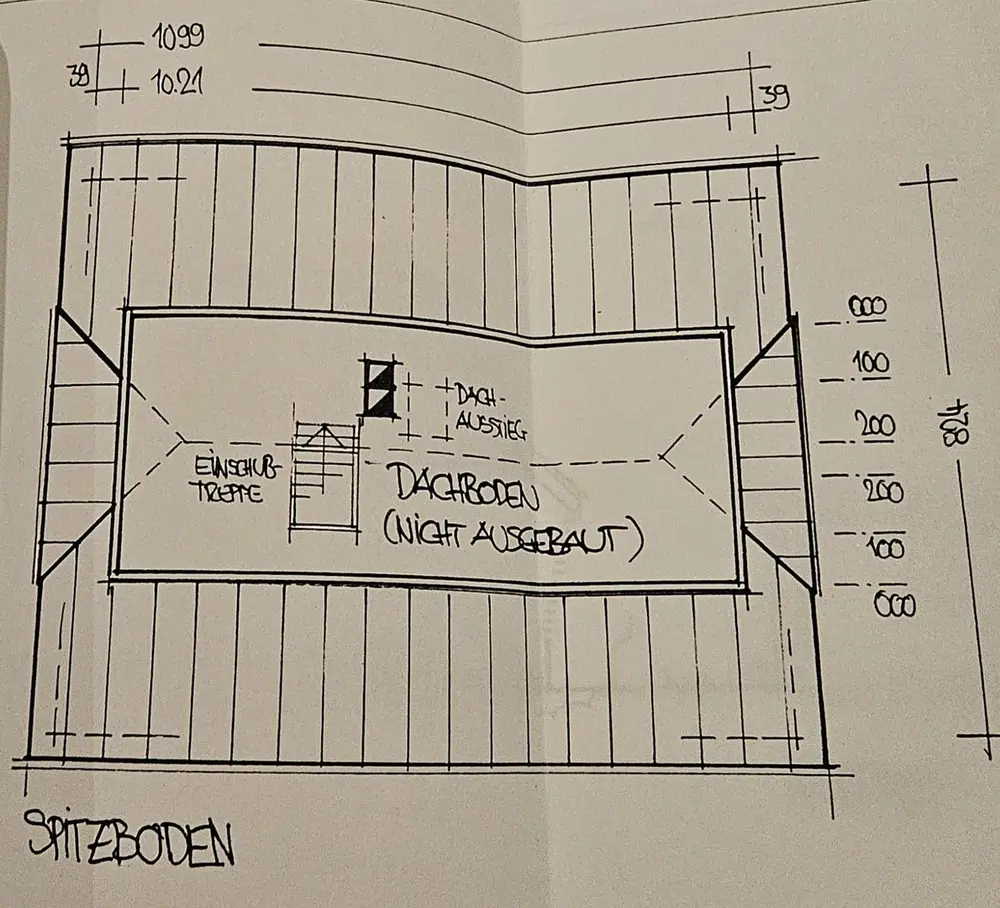 1099
39
10.21
39
000
100
DACH-
AUSSTIEG
200
EINSCHUB-
TREPPE
DACHBODEN
200
(NICHT AUSGEBAUT)
100
000
SPITZBODEN